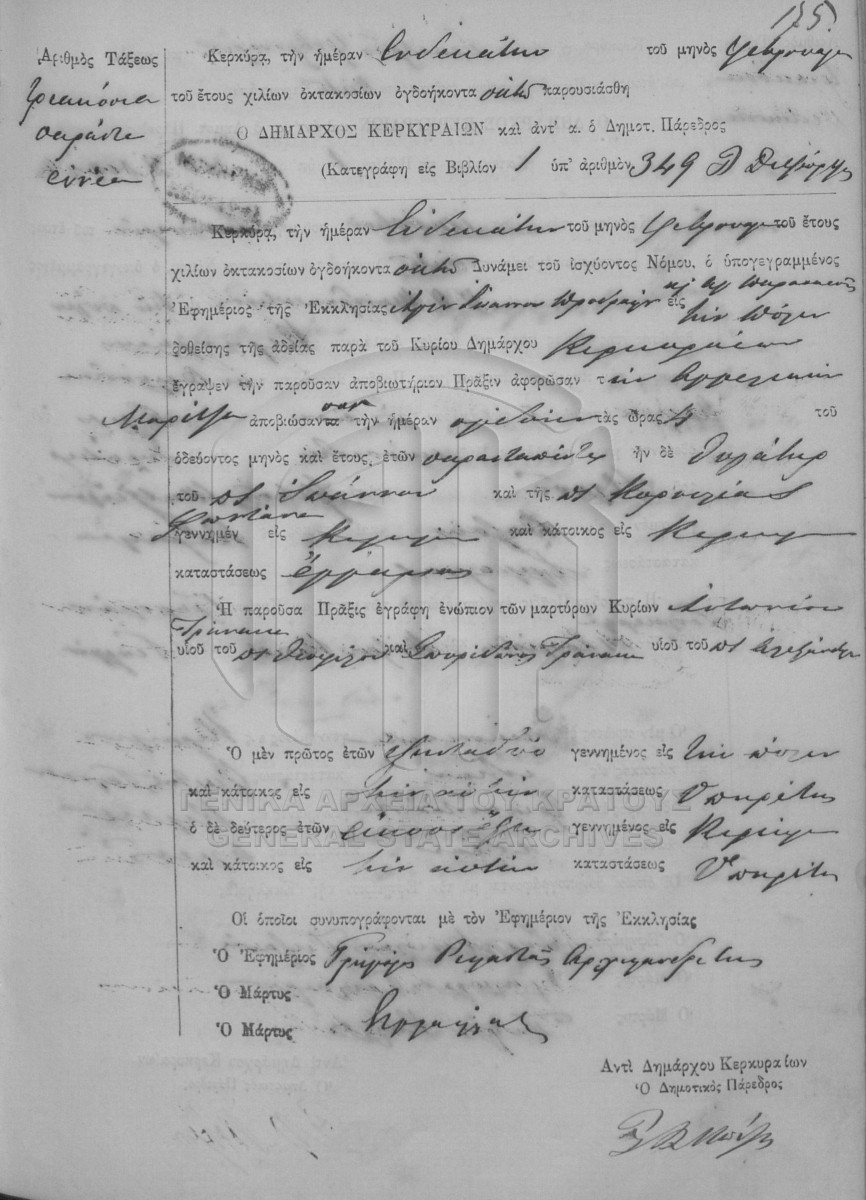 175.
Ἀριθμὸς Τάξεως
τριακόσια
σαράντα
εννέα
Κερκύρα, τὴν ἡμέραν Ενδεκάτην τοῦ μηνὸς Φεβρουαρ
τοῦ ἔτους χιλίων ὀκτακοσίων ὀγδοήκοντα οκτώ παρουσιάσθη
Ο ΔΗΜΑΡΧΟΣ ΚΕΡΚΥΡΑΙΩΝ καὶ ἀντ' α. ὁ Δημοτ. Πάρεδρος
(Κατεγράφη εἰς Βιβλίον 1 ὑπ' ἀριθμὸν 349
Κερκύρα, τὴν ἡμέραν Ενδεκάτην τοῦ μηνὸς Φεβρουαρ τοῦ ἔτους
χιλίων ὀκτακοσίων ὀγδοήκοντα οκτώ Δυνάμει τοῦ ἰσχύοντος Νόμου, ὁ ὑπογεγραμμένος
Ἐφημέριος τῆς Ἐκκλησίας Ἁγίου Ἰωάννου Προδρόμου κ Αγ Παρασκευῆς εἰς τὴν πόλιν
δοθείσης τῆς ἀδείας παρὰ τοῦ Κυρίου Δημάρχου Κερκυραίων
ἔγραψεν τὴν παροῦσαν ἀποβιωτήριον Πρᾶξιν ἀφορῶσαν τ ην
ἀποβιώσαντα σαν τὴν ἡμέραν ογδόην τὰς ὥρας τοῦ
ὁδεύοντος μηνὸς καὶ ἔτους, ἐτῶν σαρανταπέντε ἦν δὲ θυγάτηρ
τοῦ πτ Ἰωάννου καὶ τῆς πτ Κορνηλίας
γεννημέν εἰς Κερκυρα καὶ κάτοικος εἰς Κερκυρα
καταστάσεως ἐργάτις
Ἡ παροῦσα Πρᾶξις ἐγράφη ἐνώπιον τῶν μαρτύρων Κυρίων Αντωνίου
υἱοῦ τοῦ πτ Γεωργίου καὶ Σπυρίδωνος υἱοῦ τοῦ πτ Αλεξάνδρ
Ὁ μὲν πρῶτος ἐτῶν ἑξηνταδύο γεννημένος εἰς την πόλιν
καὶ κάτοικος εἰς την αυτην καταστάσεως Υπηρέτης
ὁ δὲ δεύτερος ἐτῶν εικοσι έξη γεννημένος εἰς Κερκυρα
καὶ κάτοικος εἰς την αυτην καταστάσεως Υπηρέτης
ΓΕΝΙΚΑ ΑΡΧΕΙΑ ΤΟΥ ΚΡΑΤΟΥΣ
GENERAL STATE ARCHIVES
Οἱ ὁποῖοι συνυπογράφονται μὲ τὸν Ἐφημέριον τῆς Ἐκκλησίας
Ὁ Ἐφημέριος Αρχιμανδρίτης
Ὁ Μάρτυς
Ὁ Μάρτυς
Ἀντὶ Δημάρχου Κερκυραίων
Ὁ Δημοτικὸς Πάρεδρος